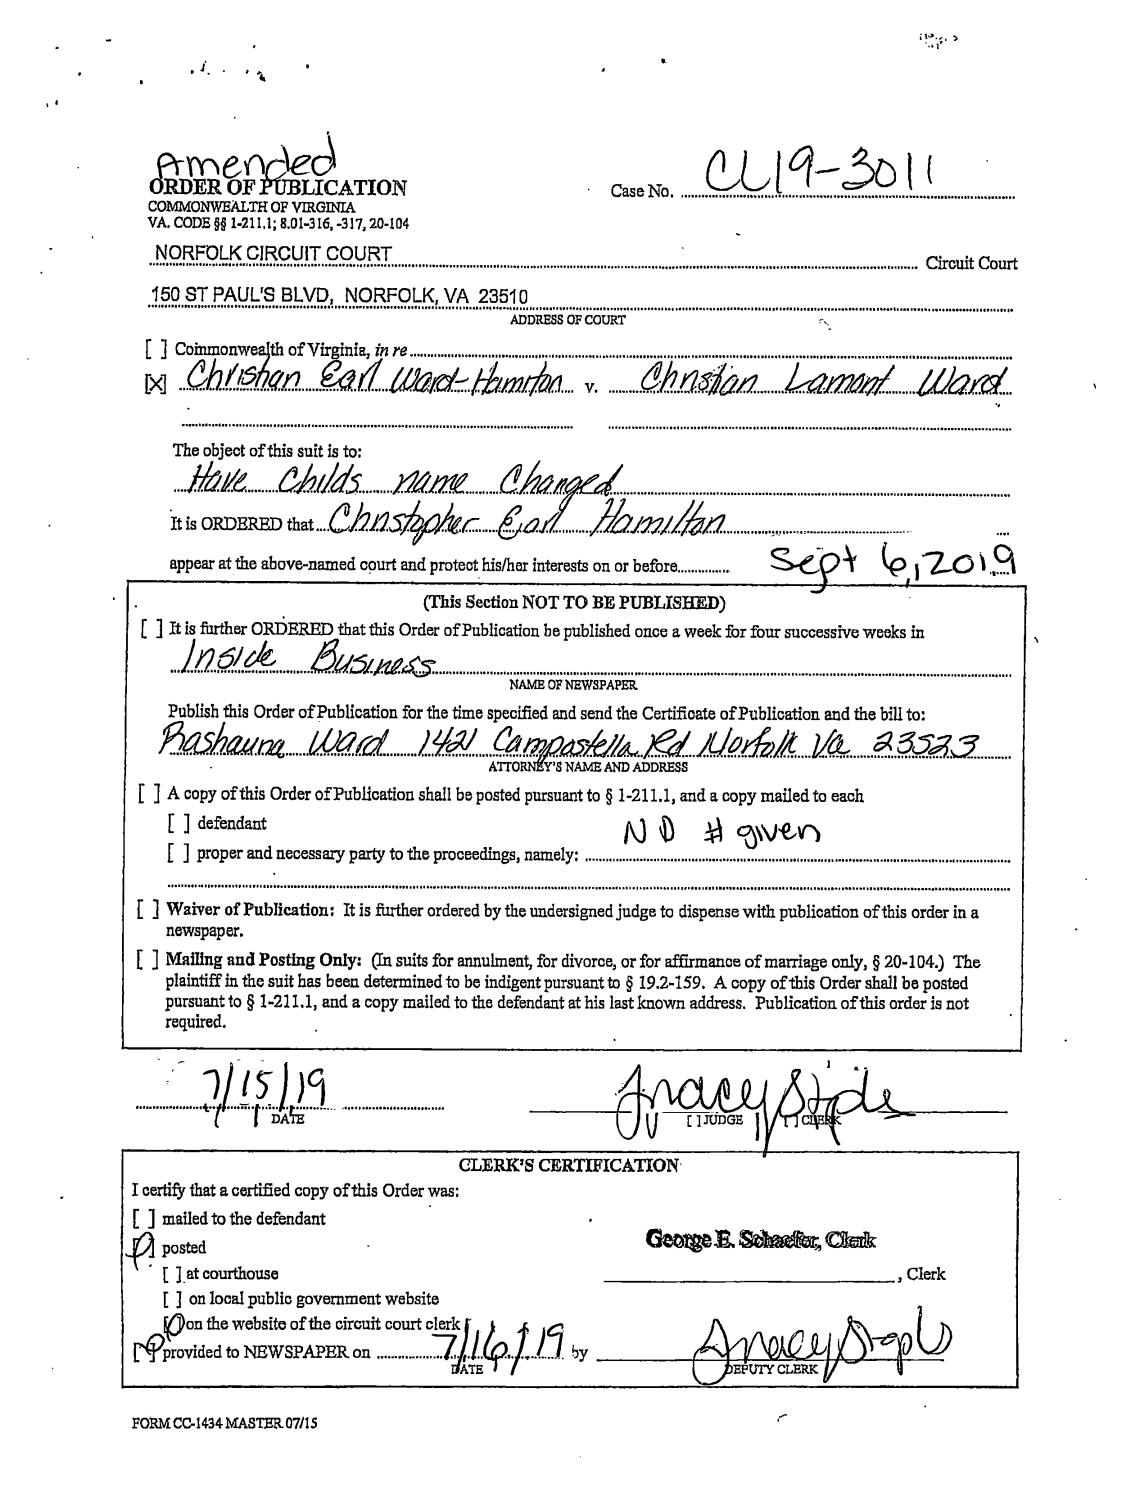 Amended
ORDER OF PUBLICATION
Case No. CL19-3011
COMMONWEALTH OF VIRGINIA
VA. CODE §§ 1-211.1; 8.01-316, -317, 20-104
NORFOLK CIRCUIT COURT Circuit Court
150 ST PAUL'S BLVD, NORFOLK, VA 23510
ADDRESS OF COURT
[ ] Commonwealth of Virginia, in re
[X] Christian Earl Ward-Hamilton v. Christian Lamont Ward
The object of this suit is to:
Have Childs name Changed
It is ORDERED that Christopher Earl Hamilton
appear at the above-named court and protect his/her interests on or before Sept 6, 2019
(This Section NOT TO BE PUBLISHED)
[ ] It is further ORDERED that this Order of Publication be published once a week for four successive weeks in
Inside Business
NAME OF NEWSPAPER
Publish this Order of Publication for the time specified and send the Certificate of Publication and the bill to:
Rashauna Ward 1421 Campostella Rd Norfolk Va 23523
ATTORNEY'S NAME AND ADDRESS
[ ] A copy of this Order of Publication shall be posted pursuant to § 1-211.1, and a copy mailed to each
[ ] defendant
NO # given
[ ] proper and necessary party to the proceedings, namely:
[ ] Waiver of Publication: It is further ordered by the undersigned judge to dispense with publication of this order in a
newspaper.
[ ] Mailing and Posting Only: (In suits for annulment, for divorce, or for affirmance of marriage only, § 20-104.) The
plaintiff in the suit has been determined to be indigent pursuant to § 19.2-159. A copy of this Order shall be posted
pursuant to § 1-211.1, and a copy mailed to the defendant at his last known address. Publication of this order is not
required.
7/15/19
DATE
[ ] JUDGE [ ] CLERK
CLERK'S CERTIFICATION
I certify that a certified copy of this Order was:
[ ] mailed to the defendant
[ ] posted
George E. Schaefer, Clerk
[ ] at courthouse
, Clerk
[ ] on local public government website
[ ] on the website of the circuit court clerk
[ ] provided to NEWSPAPER on 7/16/19 by
DATE
DEPUTY CLERK
FORM CC-1434 MASTER 07/15